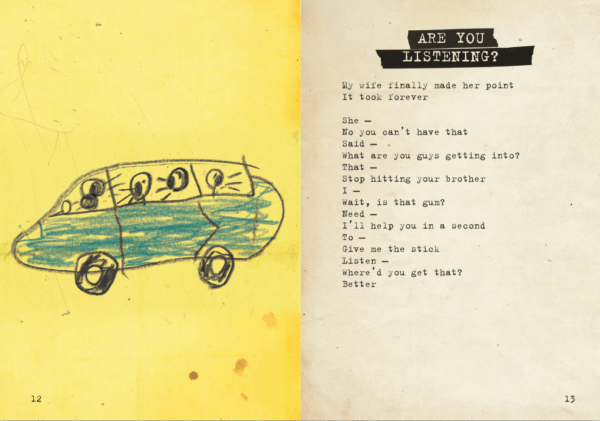 ARE YOU
LISTENING?
My wife finally made her point
It took forever
She —
No you can't have that
Said —
What are you guys getting into?
That —
Stop hitting your brother
I —
Wait, is that gum?
Need —
I'll help you in a second
To —
Give me the stick
Listen —
Where'd you get that?
Better
12
13